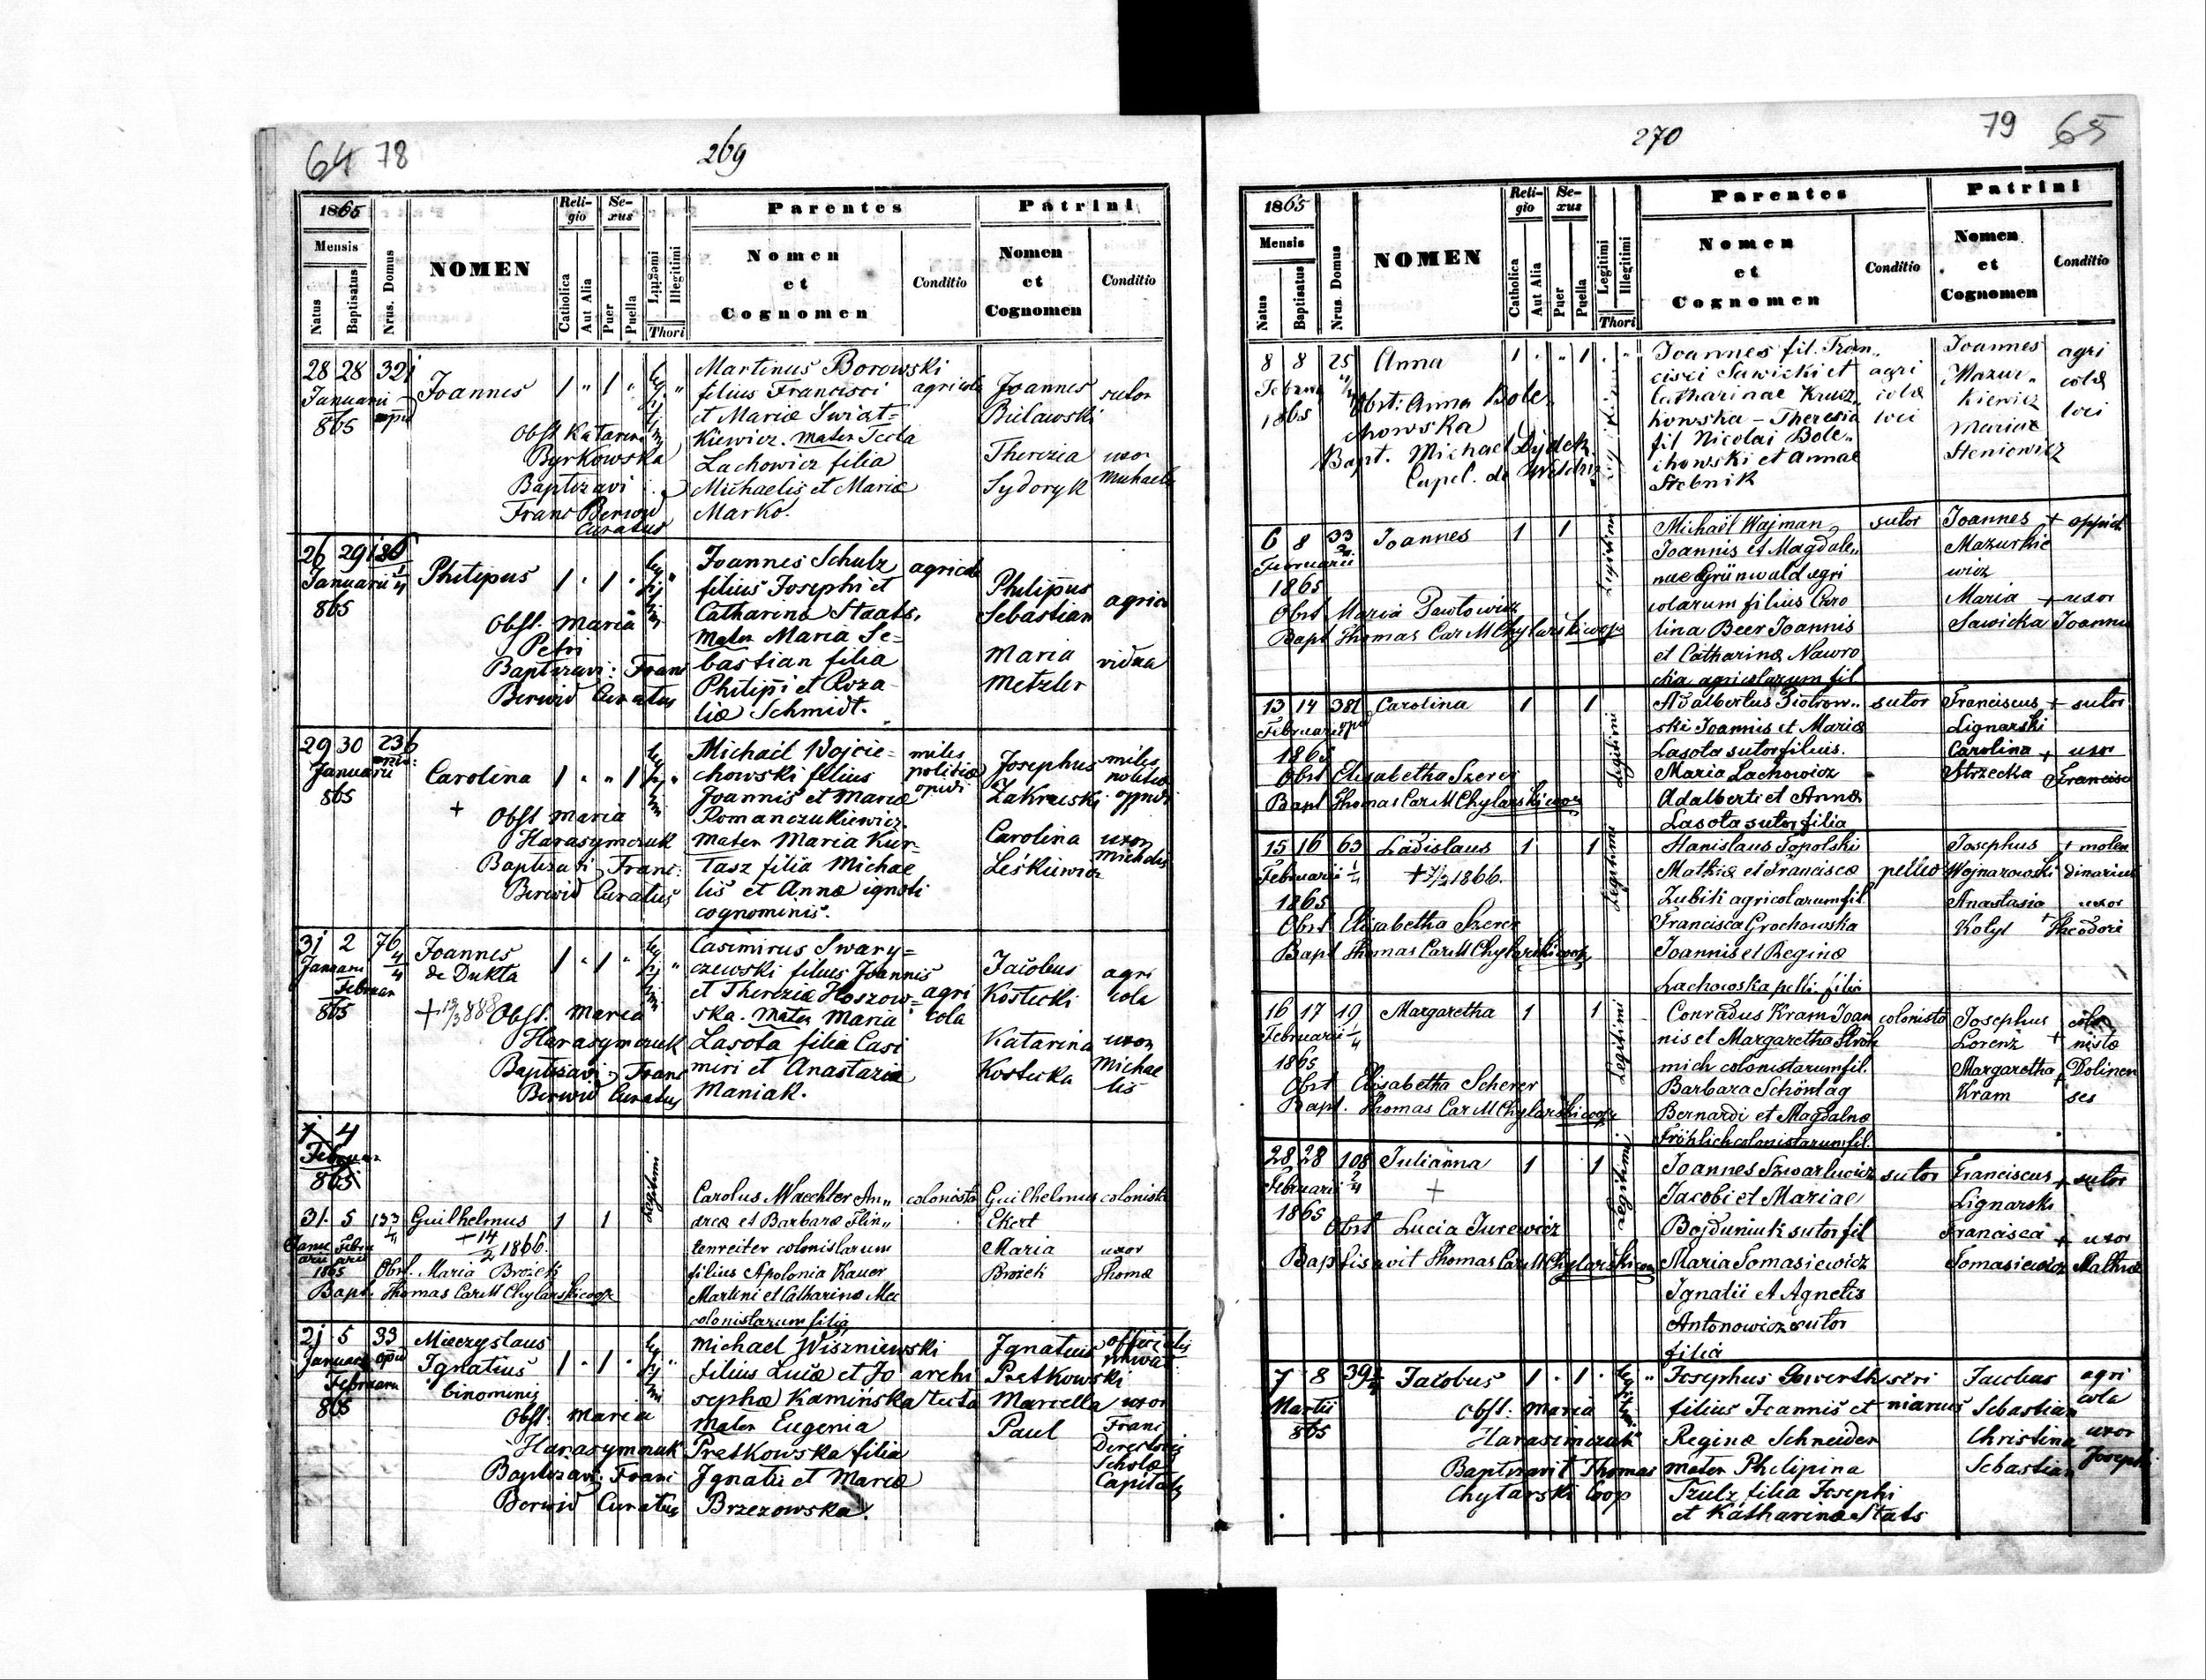 64 78
269
1865
Mensis
Natus
Baptisatus
Nrus. Domus
NOMEN
Religio
Catholica
Aut Alia
Sexus
Puer
Puella
Legitimi
Illegitimi
Thori
Parentes
Nomen
et
Cognomen
Conditio
Patrini
Nomen
et
Cognomen
Conditio
28 28 321
Januarii
865
Joannes
1 " 1 "
Obst Katarina
Byrkowska
Baptizavi
Franc Berwid
Curatus
Martinus Borowski
filius Francisci
et Mariæ Swiat=
kiewicz. Mater Tecla
Lachowicz filia
Michaelis et Mariæ
Marko.
agricola
Joannes
Bulawski
Therezia
Sydoryk
sutor
uxor
Michaelis
26 29 186
Januarii
865
Philipus
1 . 1 .
Obst. Maria
Petri
Baptizavi: Franc
Berwid Curatus
Joannes Schulz
filius Josephi et
Catharina Staats,
Mater Maria Se=
bastian filia
Philipi et Roza
liæ Schmidt.
agricola
Philipus
Sebastian
Maria
Metzler
agrico
vidua
29 30 236
Januarii
865
Carolina
1 " " 1
+
Obst Maria
Harasymczuk
Baptizavi Franc:
Berwid Curatus
Michaël Wojcie=
chowski filius
Joannis et Mariæ
Romanczukiewicz.
Mater Maria Kur=
tasz filia Michae
lis et Annæ ignoti
cognominis.
miles
politiæ
opidi
Josephus
Zakrzeski
Carolina
Leśkiewicz
miles
politiæ
oppidi
uxor
Michalis
31 2 76
Januari
Februar
865
Joannes
de Dukta
1 . 1 "
Obst. Maria
Harasymczuk
Baptizavi Franc
Berwid Curatus
Casimirus Swary=
czewski filius Joannis
et Thereziæ Hoszow=
ska. Mater Maria
Lasota filia Casi
miri et Anastaziæ
Maniak.
agri
cola
Jacobus
Kostecki
Katarina
Kostecka
agri
cola
uxor
Michae
lis
1 4
Februar
865
31. 5 133
Januarii Februarii
1865
Guilhelmus
1 1
+ 14/2 1866.
Obst. Maria Brożek
Bapt. Thomas Car M Chylarski coop
Legitimi
Carolus Waechter An"
dreæ et Barbaræ Flin"
tenreiter colonistarum
filius Apolonia Kauer
Martini et Catharinæ Mec
colonistarum filia
colonista
Guilhelmus
Ekert
Maria
Brożek
colonista
uxor
Thomæ
21 5 33
Januarii
Februarii
865
Mieczyslaus
Ignatius
binominis
1 . 1 .
Obst. Maria
Harasymczuk
Baptizavi: Franc
Berwid Curatus
Michael Wiszniewski
filius Lucæ et Jo
sephæ Kamińska
Mater Eugenia
Pretkowska filia
Ignatii et Mariæ
Brzezowska.
archi
tecta
Ignatius
Pretkowski
Marcella
Paul
officialis
uxor
Franc
Directoris
Scholæ
Capitalis
270
79 65
1865
Mensis
Natus
Baptisatus
Nrus. Domus
NOMEN
Religio
Catholica
Aut Alia
Sexus
Puer
Puella
Legitimi
Illegitimi
Thori
Parentes
Nomen
et
Cognomen
Conditio
Patrini
Nomen
et
Cognomen
Conditio
8 8 25
Februar
1865
Anna
1 . " 1 . "
Obst: Anna Bole"
chowska
Bapt. Michael Dydek
Capel. de
Joannes fil. Fran"
cisci Sawicki et
Catharinae Krucz"
kowska - Theresia
fil Nicolai Bole"
chowski et Annae
Stebnik
agri
colæ
loci
Joannes
Mazur"
kiewicz
Mariae
Steniewicz
agri
colæ
loci
6 8 33
Februarii
1865
Joannes
1 1
Obst Maria Pawlowicz
Bapt Thomas Car M Chylarski coop
Legitimi
Michaël Wajman
Joannis et Magdale"
nae Grünwald agri
colarum filius Caro
lina Beer Joannis
et Catharinæ Nawro
cka agricolarum fil
sutor
Joannes +
Mazurkie
wicz
Maria +
Sawicka
oppid
uxor
Joannis
13 14 381
Februarii
1865
Carolina
1 1
Obst Elisabetha Szerer
Bapt Thomas Car M Chylarski coop
Legitimi
Adalbertus Piotrow"
ski Joannis et Mariæ
Lasota sutor filius.
Maria Lachowicz
Adalberti et Annæ
Lasota sutor filia
sutor
Franciscus +
Lignarski
Carolina +
Strzecka
sutor
uxor
Francisci
15 16 63
Februarii
1865
Ladislaus
1 1
Obst Elisabetha Szerer
Bapt Thomas Car M Chylarski coop
Legitimi
Stanislaus Topolski
Mathiæ et Franciscæ
Zubik agricolarum fil.
Francisca Grochowska
Joannis et Reginæ
Lachowska pelli. filia
pellio
Josephus
Wojnarowski
Anastasia
Kolyt
+ molen
dinarius
uxor
+ Theodori
16 17 19
Februarii
1865
Margaretha
1 1
Obst Elisabetha Scherer
Bapt. Thomas Car M Chylarski coop
Legitimi
Conradus Kram Joan
nis et Margaretha Ströh
mich colonistarum fil.
Barbara Schöntag
Bernardi et Magdalnæ
Fröhlich colonistarum fil.
colonista
Josephus
Lorenz +
Margaretha +
Kram
colo
nistæ
Dolinen
ses
28 28 108
Februarii
1865
Julianna
1 1
+
Obst Lucia Jurewicz
Baptisavit Thomas Car M Chylarski coop
Legitimi
Joannes Szwarlucicz
Jacobi et Mariae
Bojduniuk sutor fil
Maria Tomasiewicz
Ignatii et Agnetis
Antonowicz sutor
filia
sutor
Franciscus +
Lignarski
Francisca +
Tomasiewicz
sutor
uxor
Mathiæ
7 8 39
Martii
865
Jacobus
1 . 1 .
Obst. Maria
Harasimczuk
Baptizavit Thomas
Chylarski Coop
Josephus
filius Joannis et
Reginæ Schneider
Mater Philipina
Szulz filia Josephi
et Katharinæ Stats
Jacobus
Sebastian
Christina
Sebastian
agri
cola
uxor
Josephi